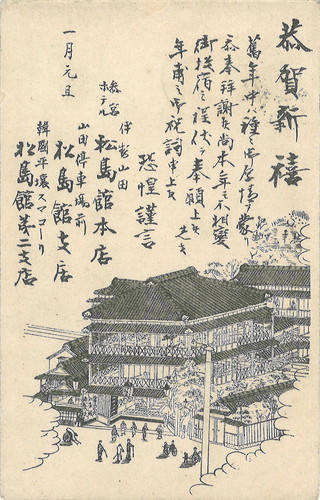 恭賀新禧
舊年中ハ種々御屋情ヲ蒙リ
忝奉拝謝候尚本年モ不相変
御投宿之程伏テ奉願上候先ハ
年甫之御祝詞申上候
恐惶謹言
一月元旦
参宮
ホテル
伊勢山田
松島館本店
山田停車場前
松島館支店
韓國平壌スマコーリ
松島館第二支店